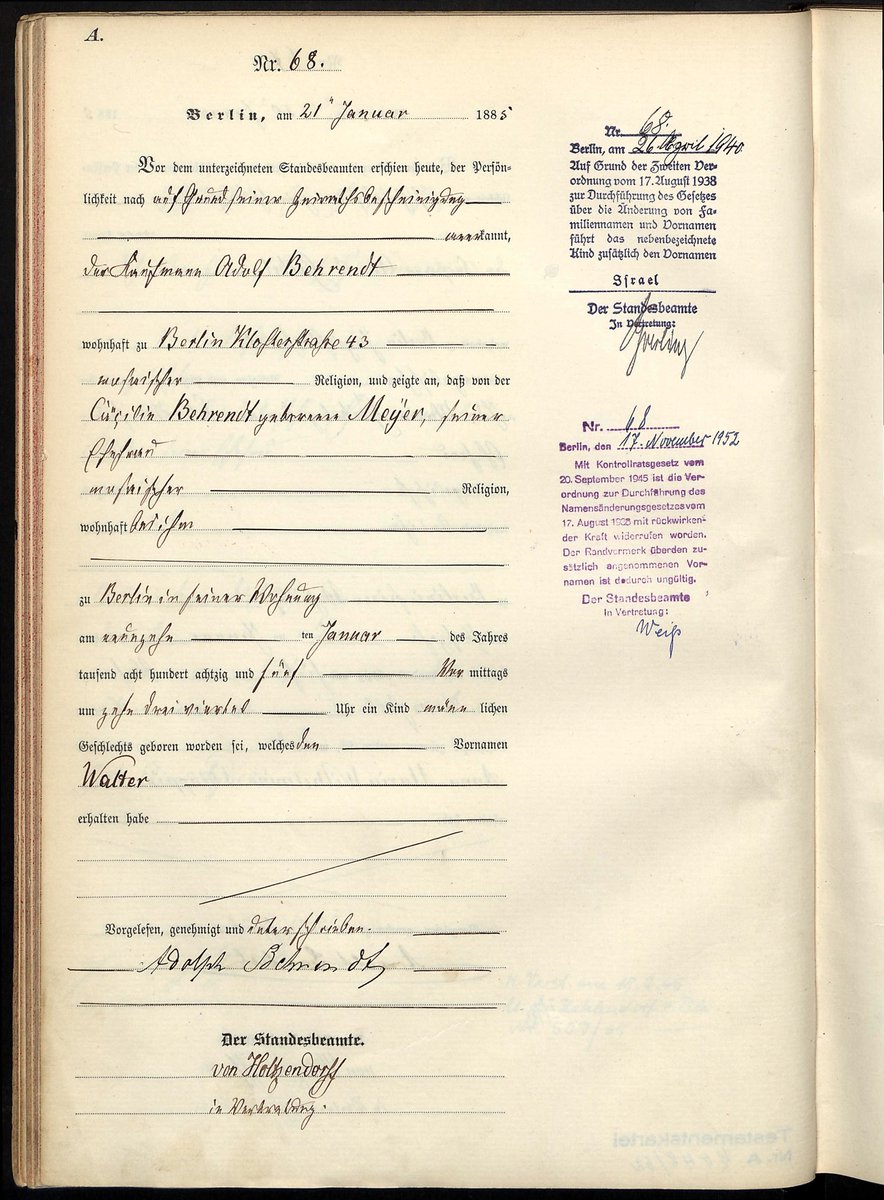 A.
Nr. 68.
Berlin, am 21ten Januar 1885
Vor dem unterzeichneten Standesbeamten erschien heute, der Persön-
lichkeit nach auf Grund seiner Heirathsbescheinigung
anerkannt,
der Kaufmann Adolf Behrendt
wohnhaft zu Berlin Klosterstraße 43
mosaischer Religion, und zeigte an, daß von der
Cäcilie Behrendt geborene Meyer, seiner
Ehefrau
mosaischer Religion,
wohnhaft bei ihm
zu Berlin in seiner Wohnung
am neunzehn ten Januar des Jahres
tausend acht hundert achtzig und fünf Vor mittags
um zehn dreiviertel Uhr ein Kind männ lichen
Geschlechts geboren worden sei, welches den Vornamen
Walter
erhalten habe
Vorgelesen, genehmigt und unterschrieben.
Adolph Behrendt
Der Standesbeamte.
von Holtzendorff
in Vertretung.
Nr. 68.
Berlin, am 26. April 1940
Auf Grund der Zweiten Ver-
ordnung vom 17. August 1938
zur Durchführung des Gesetzes
über die Änderung von Fa-
miliennamen und Vornamen
führt das nebenbezeichnete
Kind zusätzlich den Vornamen
Israel
Der Standesbeamte
In Vertretung:
Nr. 68
Berlin, den 17. November 1952
Mit Kontrollratsgesetz vom
20. September 1945 ist die Ver-
ordnung zur Durchführung des
Namensänderungsgesetzes vom
17. August 1938 mit rückwirken-
der Kraft widerrufen worden.
Der Randvermerk überden zu-
sätzlich angenommenen Vor-
namen ist dadurch ungültig.
Der Standesbeamte
In Vertretung:
Weiß